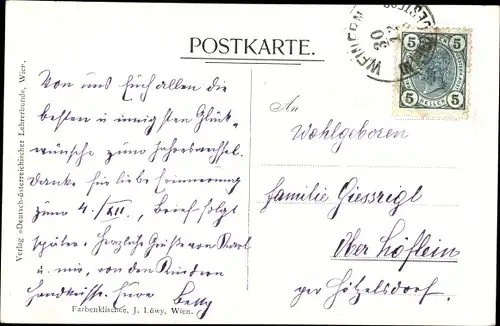 POSTKARTE.
WEINERN
30
12
5 5
HELLER
5 5
Von uns Euch allen die
besten u innigsten Glük-
wünsche zum Jahreswechsel.
Danke für liebe Erinnerung
zum 4./XII., Brief folgt
später. Herzlich Grüße von Karl
u. mir, von den Kindern
Handküsse. Eure Betty
An
Wohlgeboren
Familie Giessrigl
Ober Höflein
per Hötzelsdorf.
Verlag »Deutsch-österreichischer Lehrerbund«, Wien.
Farbenklischee, J. Löwy, Wien.